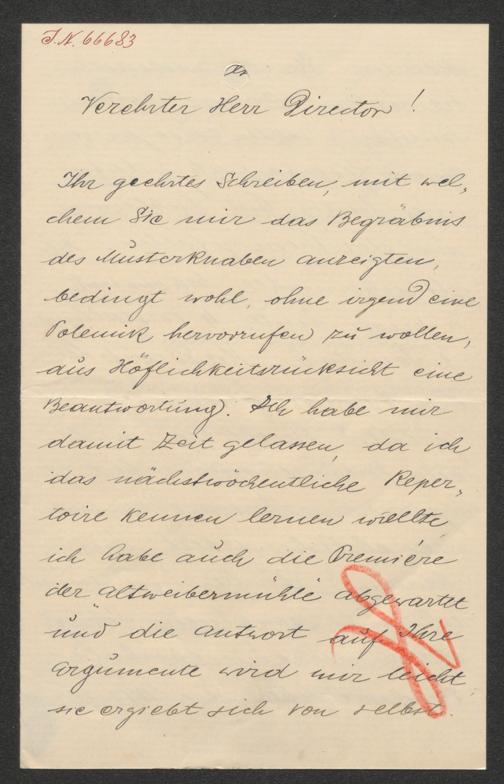 J.N. 66683
Verehrter Herr Director!
Ihr geehrtes Schreiben, mit wel,
chem Sie mir das Begräbnis
des Musterknaben anzeigten,
bedingt wohl, ohne irgend eine
Polemik hervorrufen zu wollen,
aus Höflichkeitsrücksicht eine
Beantwortung. Ich habe mir
damit Zeit gelassen, da ich
das nächstwöchentliche Reper,
toire kennen lernen wollte,
ich habe auch die Première
der Altweibermühle abgewartet
und die Antwort auf Ihre
Argumente wird mir leicht,
sie ergiebt sich von selbst.